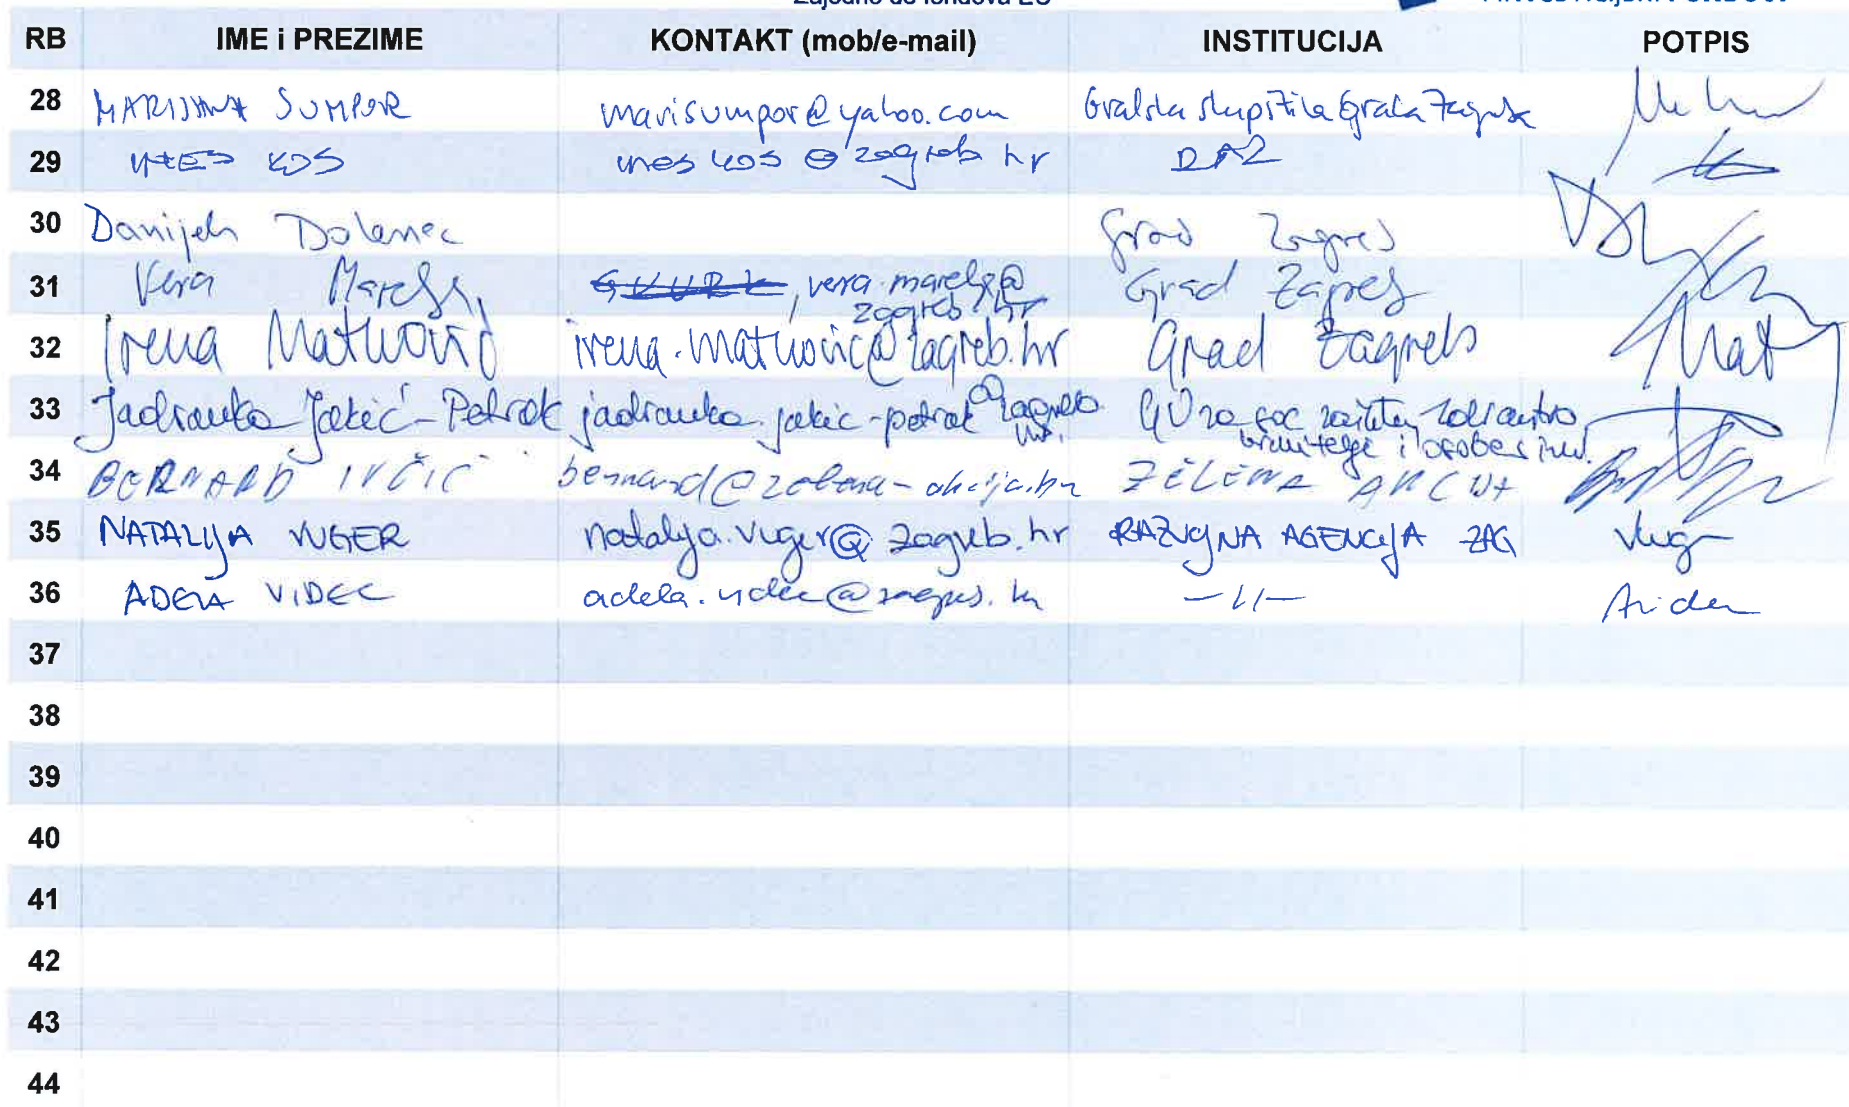 Zajedno do fondova EU
RB IME i PREZIME KONTAKT (mob/e-mail) INSTITUCIJA POTPIS
28 MARIJANA SUMPOR marisumpor@yahoo.com Gradska skupština Grada Zagreba
29 INES KOS ines kos@zagreb hr RAZ
30 Danijela Dolenec Grad Zagreb
31 Vera , vera.marelja@ Grad Zagreb
zagreb.hr
32 Irena Matković irena.matkovic@zagreb.hr Grad Zagreb
33 Jadranka Jakić-Petrak jadranka.jakic-petrak@zagreb. GU za soc zaštitu, zdravstvo,
hr. branitelje i osobe s inv.
34 BERNARD IVČIĆ bernard@zelena-akcija.hr ZELENA AKCIJA
35 NATALIJA VUGER natalija.vuger@zagreb.hr RAZVOJNA AGENCIJA ZAG
36 ADELA VIDEC adela.videc@zagreb.hr -11-
37
38
39
40
41
42
43
44